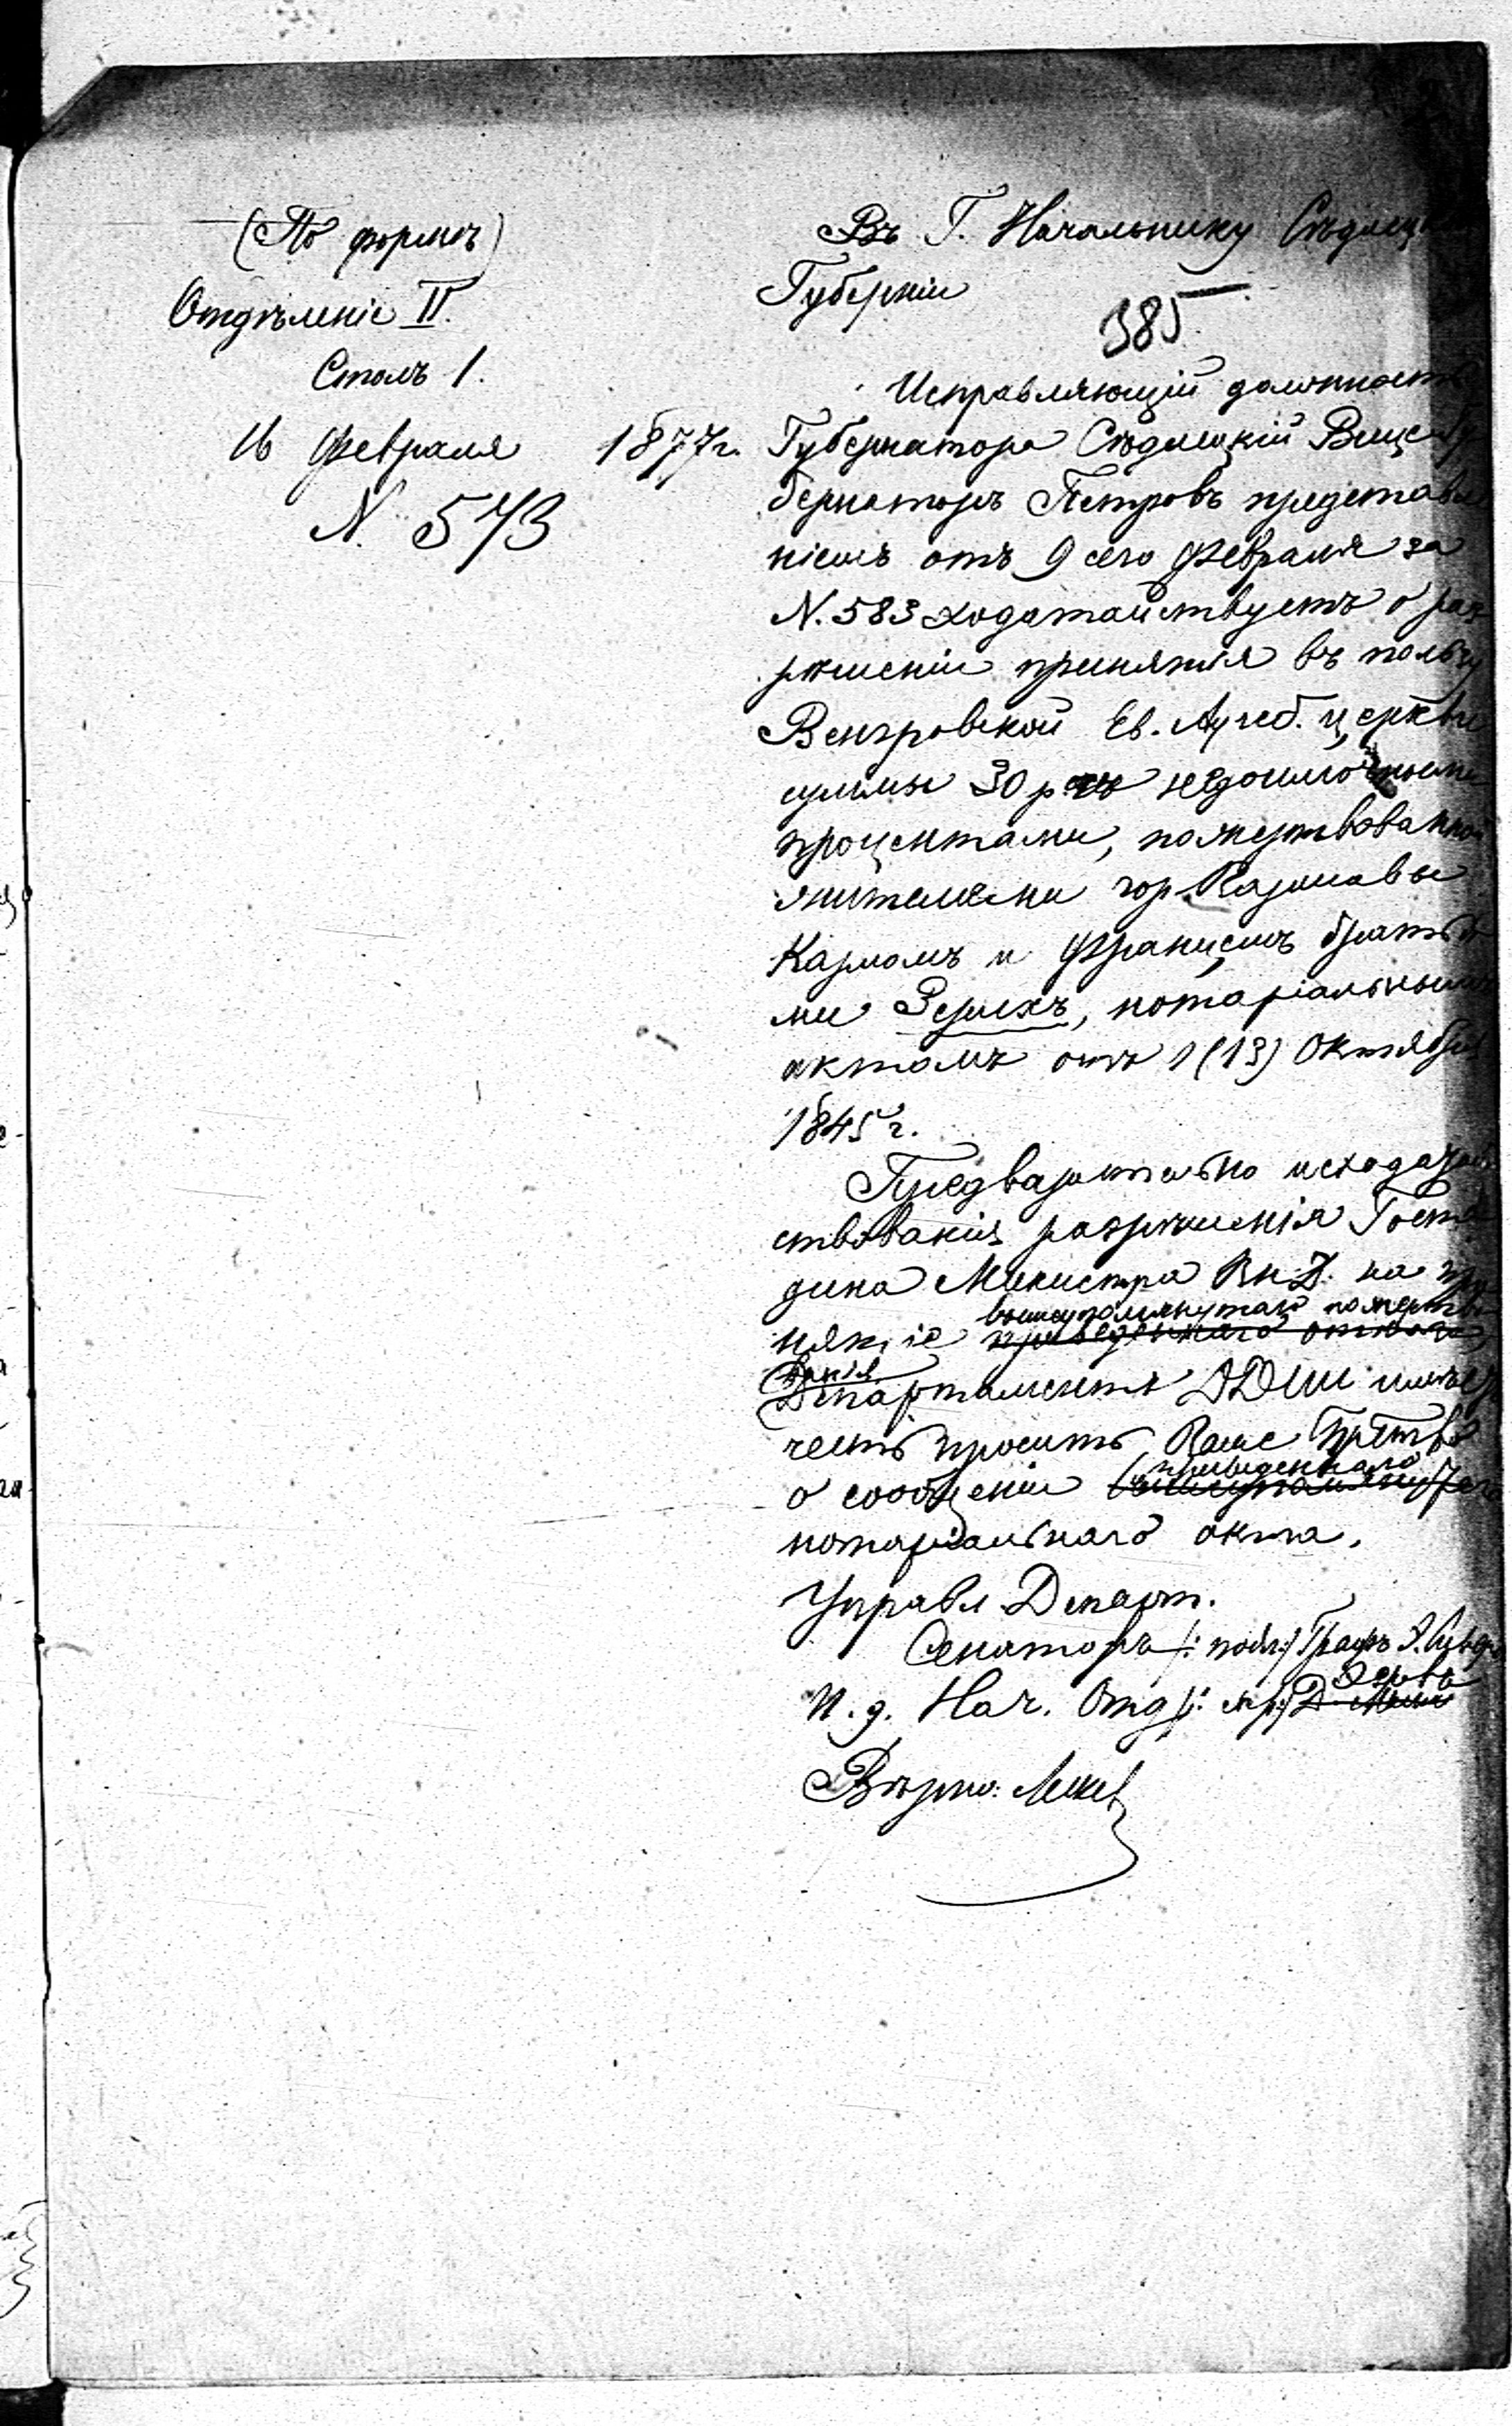 (По формѣ)
Отдѣленіе II.
Столъ 1.
16 Февраля 1877 г.
N. 573
Въ Г. Начальнику Сѣдлецк
Губерніи
385
Исправляющій должность
Губернатора Сѣдлецкій Вице-гу
бернаторъ Петровъ представле
ніемъ отъ 9 сего Февраля за
N. 583 ходатайствуетъ о раз
рѣшеніи принятія въ пользу
Венгровской Ев. Аугсб. церкви
суммы 30 р. съ недоимочными
процентами, пожертвованной
жителями гор. Варшавы
Карломъ и Францемъ братья
ми, нотаріальнымъ
актомъ отъ 1 (13) Октября
1845 г.
Предварительно исходатай
ствованія разрѣшенія Госпо
дина Министра Вн. Д. на при
вышеупомянутаго пожертво
нятіе приведеннаго
ванія
Департаментъ ДДИИ имѣетъ
честь просить Ваше Пр-тво
приведеннаго
о сообщеніи вышеупомянутаго
нотаріальнаго акта.
Управл. Департ.
Сенаторъ /: подп:/ Графъ Э. Сиверс
И. д. Нач. Отд /: скр:/ Д.
Вѣрно: